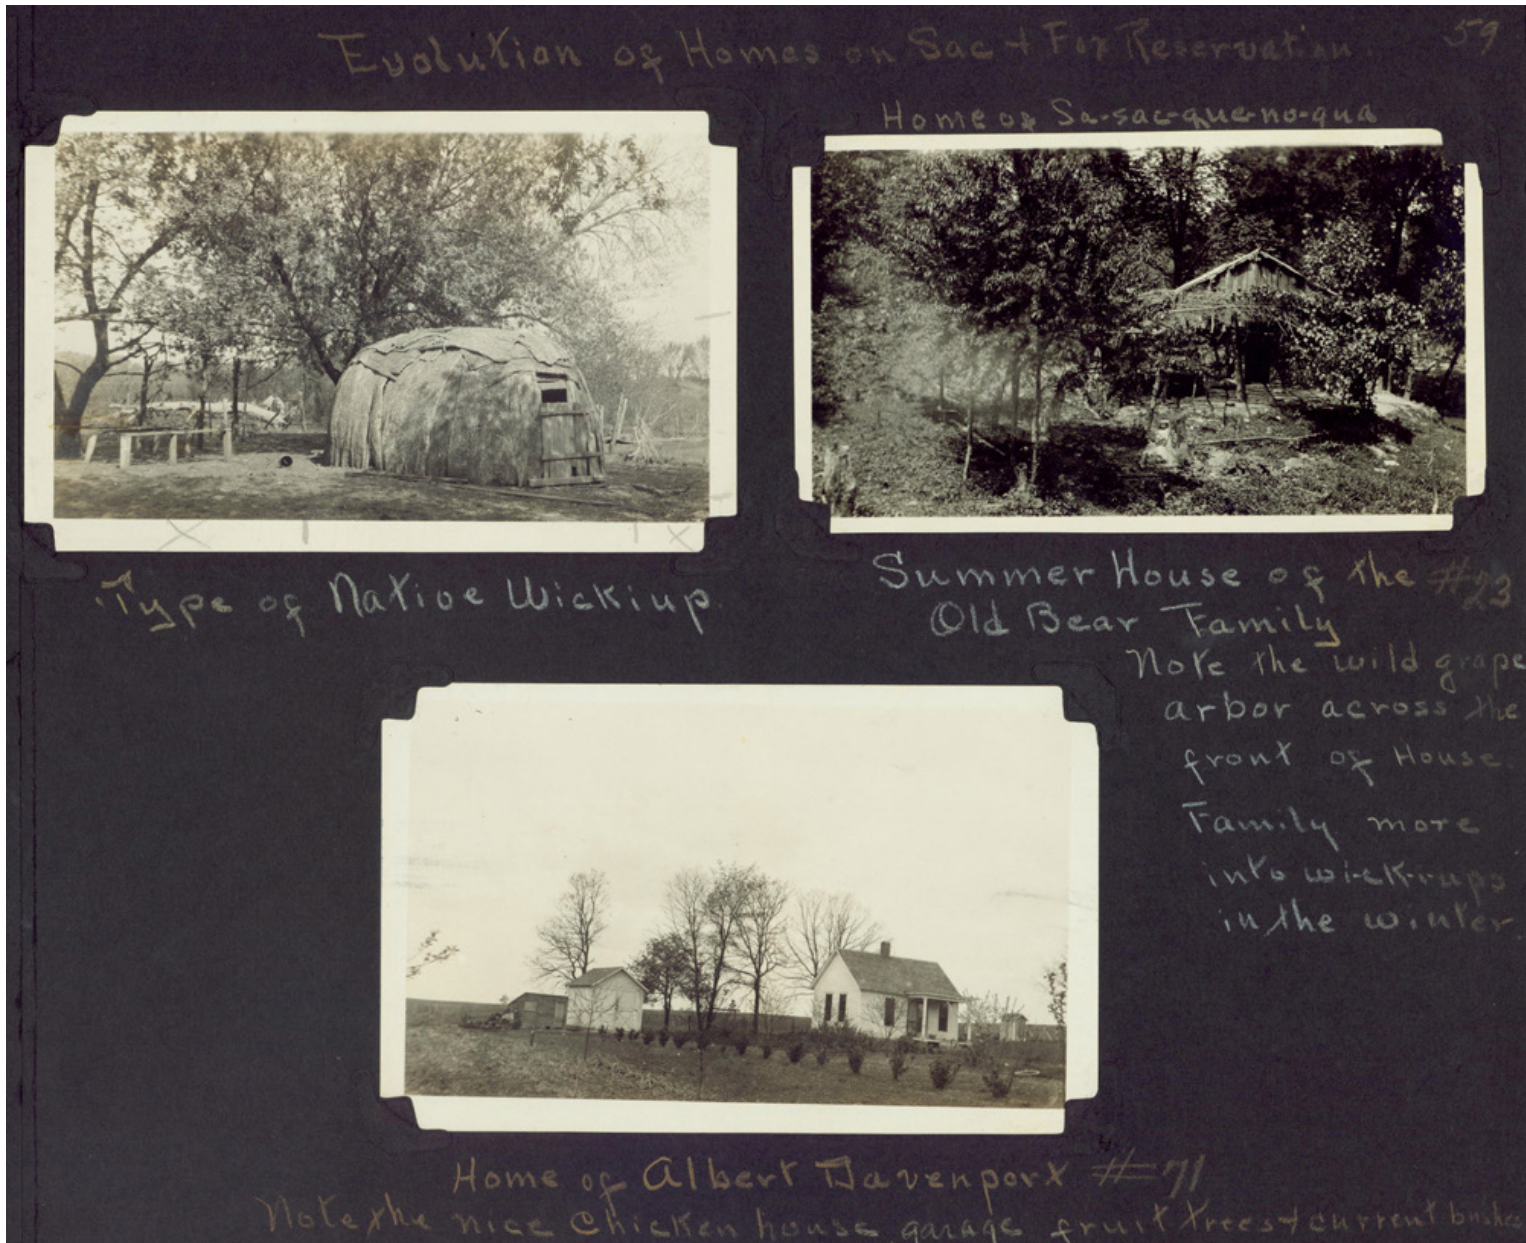 Evolution of Homes on Sac + Fox Reservation.
59
Home of Sa-sac-que-no-qua
Type of Native Wickiup.
Summer House of the #23
Old Bear Family
Note the wild grape
arbor across the
front of House.
Family move
into wick-i-ups
in the winter.
Home of Albert Davenport #71
Note the nice Chicken house garage fruit trees + current bushes